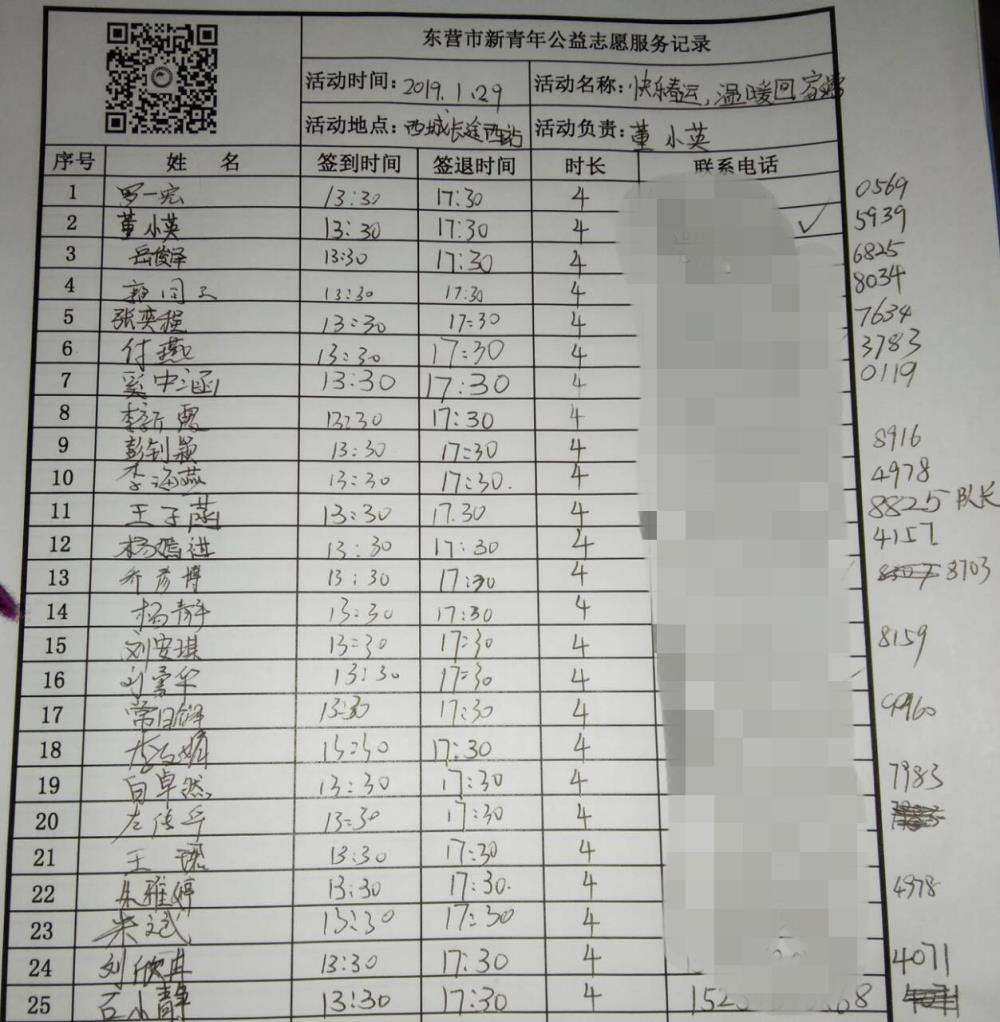 东营市新青年公益志愿服务记录
活动时间: 2019.1.29 活动名称: 快乐春运,温暖回家路
活动地点: 西城长途西站 活动负责: 董小英
序号 姓 名 签到时间 签退时间 时长 联系电话
1 罗一宏 13:30 17:30 4 0569
2 董小英 13:30 17:30 4 ✓ 5939
3 岳俊泽 13:30 17:30 4 6825
4 13:30 17:30 4 8034
5 张奕程 13:30 17:30 4 7634
6 付燕 13:30 17:30 4 3783
7 奚中涵 13:30 17:30 4 0119
8 13:30 17:30 4
9 彭钊颖 13:30 17:30 4 8916
10 李海燕 13:30 17:30. 4 4978
11 王子菡 13:30 17.30 4 8825 队长
12 13:30 17:30 4 4157
13 乔彦博 13:30 17:30 4 8703
14 杨静 13:30 17:30 4
15 刘安琪 13:30 17:30 4 8159
16 13:30 17:30 4
17 13:30 17:30 4 9960
18 13:30 17:30 4
19 白卓然 13:30 17:30 4 7983
20 左传乎 13:30 17:30 4
21 王珺 13:30 17:30 4
22 朱雅婷 13:30 17:30. 4 4978
23 朱斌 13:30 17:30 4
24 刘欣冉 13:30 17:30 4 4071
25 石小静 13:30 17:30 4